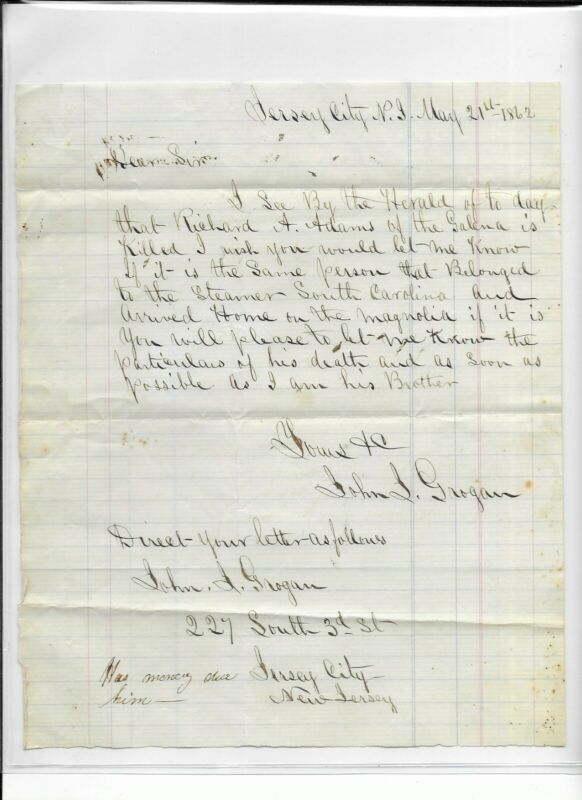 Jersey City N.J. May 21st 1862
Dear Sir
I See By the Herald of to day
that Richard A. Adams of the Galena is
Killed I wish you would let me Know
if it is the Same person that Belonged
to the Steamer South Carolina and
Arrived Home on the Magnolia if it is
You will please to let me Know the
particulars of his death and as soon as
possible as I am his Brother
Yours &C
John J. Grogan
Direct your letter as follows
John. J. Grogan
227 South 3d St
Jersey City
New Jersey
Was money due
him